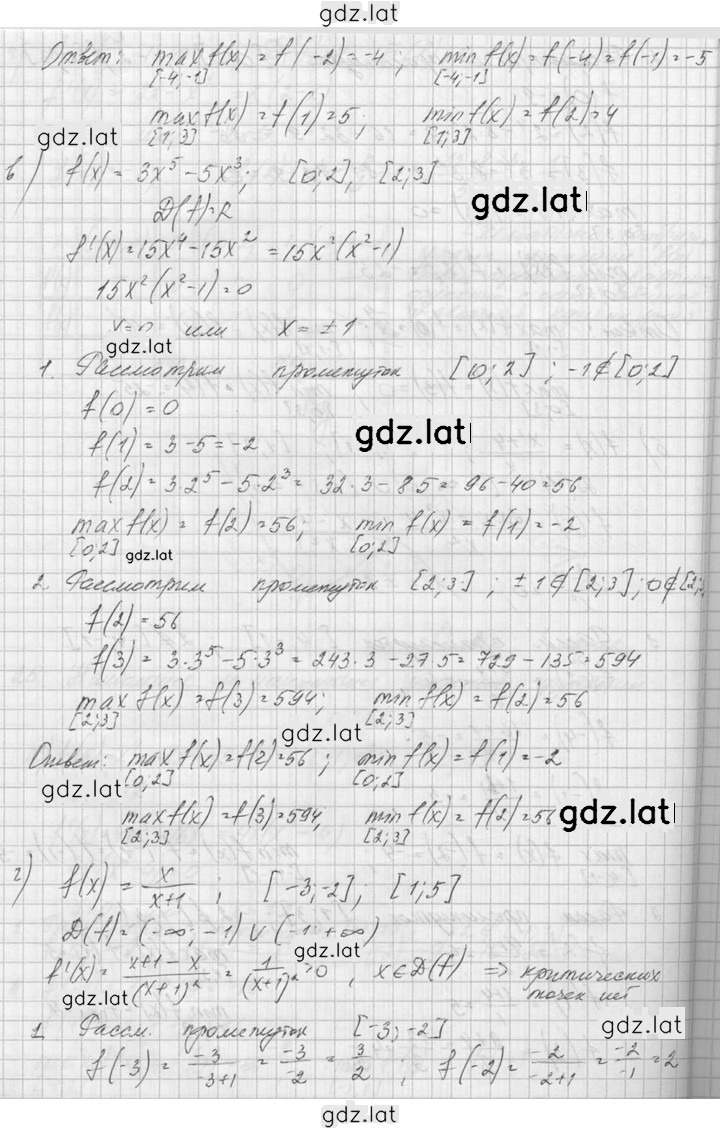 gdz.lat
Ответ: max f(x) = f(-2) = -4 ; min f(x) = f(-4) = f(-1) = -5
[-4;-1] [-4;-1]
max f(x) = f(1) = 5; min f(x) = f(2) = 4
gdz.lat [1;3] [1;3]
в) f(x) = 3x⁵ - 5x³; [0;2], [2;3]
gdz.lat
D(f)=R
f'(x) = 15x⁴ - 15x² = 15x²(x²-1)
15x²(x²-1) = 0
x=0 или x = ±1
gdz.lat
1. Рассмотрим промежуток [0;2] ; -1∉[0;2]
f(0) = 0
gdz.lat
f(1) = 3-5 = -2
f(2) = 3·2⁵ - 5·2³ = 32·3 - 8·5 = 96-40 = 56
max f(x) = f(2) = 56; min f(x) = f(1) = -2
[0;2] gdz.lat [0;2]
2. Рассмотрим промежуток [2;3] ; ±1∉[2;3]; 0∉[2;
f(2) = 56
f(3) = 3·3⁵ - 5·3³ = 243·3 - 27·5 = 729 - 135 = 594
max f(x) = f(3) = 594; min f(x) = f(2) = 56
[2;3] [2;3]
gdz.lat
Ответ: max f(x) = f(2) = 56 ; min f(x) = f(1) = -2
gdz.lat [0;2] [0;2]
max f(x) = f(3) = 594; min f(x) = f(2) = 56 gdz.lat
[2;3] [2;3]
г) f(x) = x/(x+1) ; [-3;-2]; [1;5]
D(f) = (-∞; -1) ∪ (-1; +∞)
gdz.lat
f'(x) = (x+1-x)/(x+1)² = 1/(x+1)² > 0 , x∈D(f) ⇒ критических
точек нет
gdz.lat
gdz.lat
1. Рассм. промежуток [-3;-2]
f(-3) = -3/(-3+1) = -3/-2 = 3/2 ; f(-2) = -2/(-2+1) = -2/-1 = 2
gdz.lat